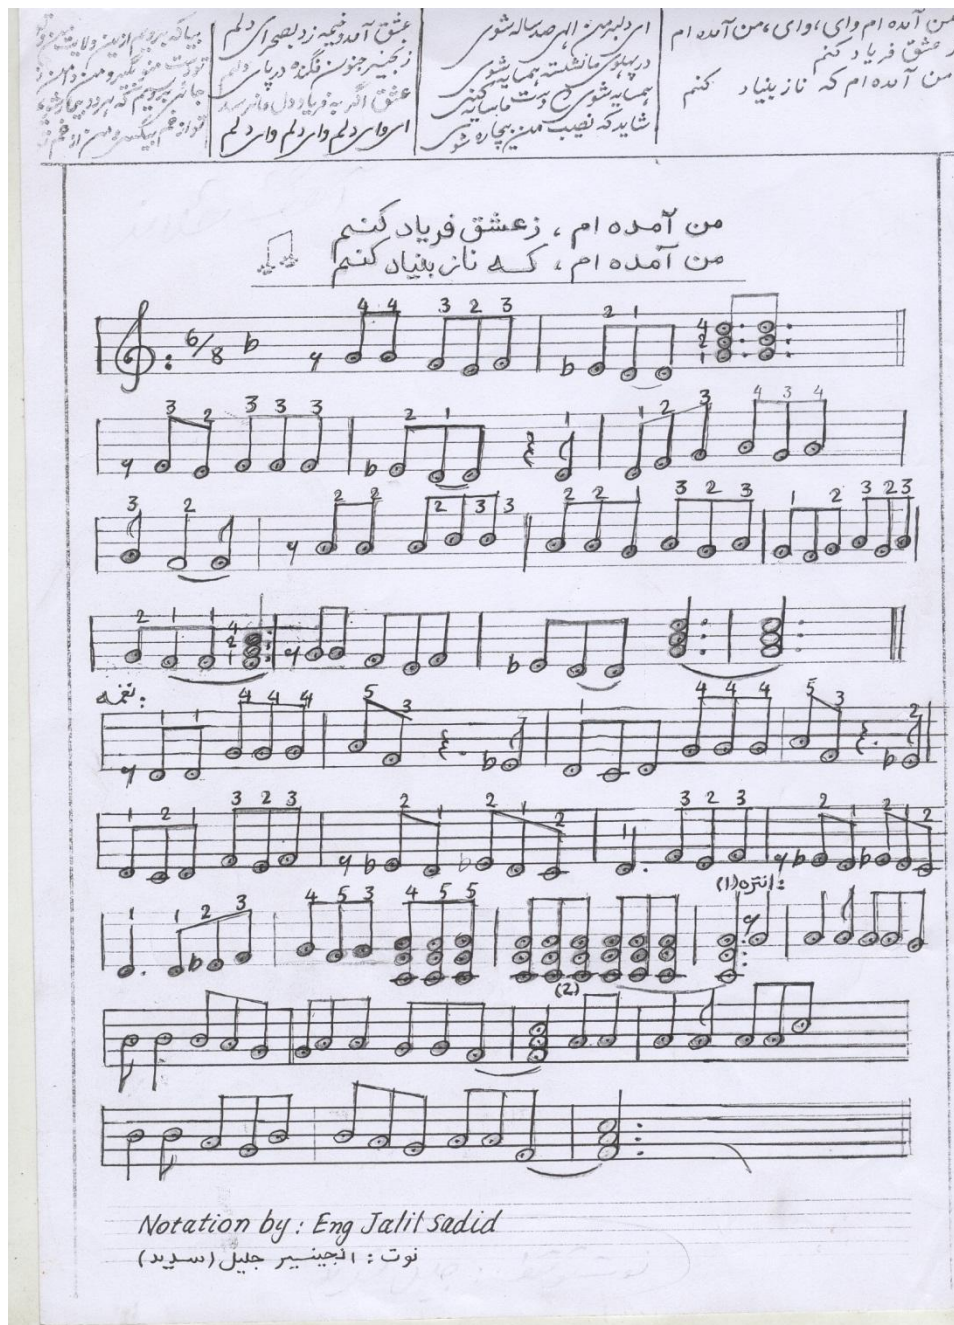 من آمده ام وای، وای، من آمده ام
عشق فریاد کنم
من آمده ام که ناز بنیاد کنم
ای دلبر من الهی صد ساله شوی
در پهلوی ما نشسته همسایه شوی
همسایه شوی دست بما سایه کنی
شاید که نصیب من بیچاره شوی
عشق آمد و خیمه زد بصحرای دلم
زنجیر جنون فگنده در پای دلم
عشق اگر به فریاد دل ما نرسد
ای وای دلم وای دلم وای دلم
بیا که بریم ازین ولایت من و تو
تو دست منو بگیر و من دامن
جائی برسیم که هر دو بیمار شویم
تو از غم بیکسی و من از غم
من آمده ام ، ز عشق فریاد کنم
من آمده ام ، که ناز بنیاد کنم
6/8
4 4 3 2 3 2 1 4 2 1
3 2 3 3 3 2 1 1 1 2 3 4 3 4
3 2 2 2 2 3 3 2 2 1 3 2 3 1 2 3 2 3
2 1 1 4 2 1
نغمه:
1 1 4 4 4 5 3 2 1 4 4 4 5 3 2
1 2 1 3 2 3 2 1 2 1 2 1 3 2 3 2 1 2 1 2
انتره (1):
1 1 2 3 4 5 3 4 5 5
(2)
Notation by: Eng Jalil Sadid
نوت : انجینیر جلیل (سدید)